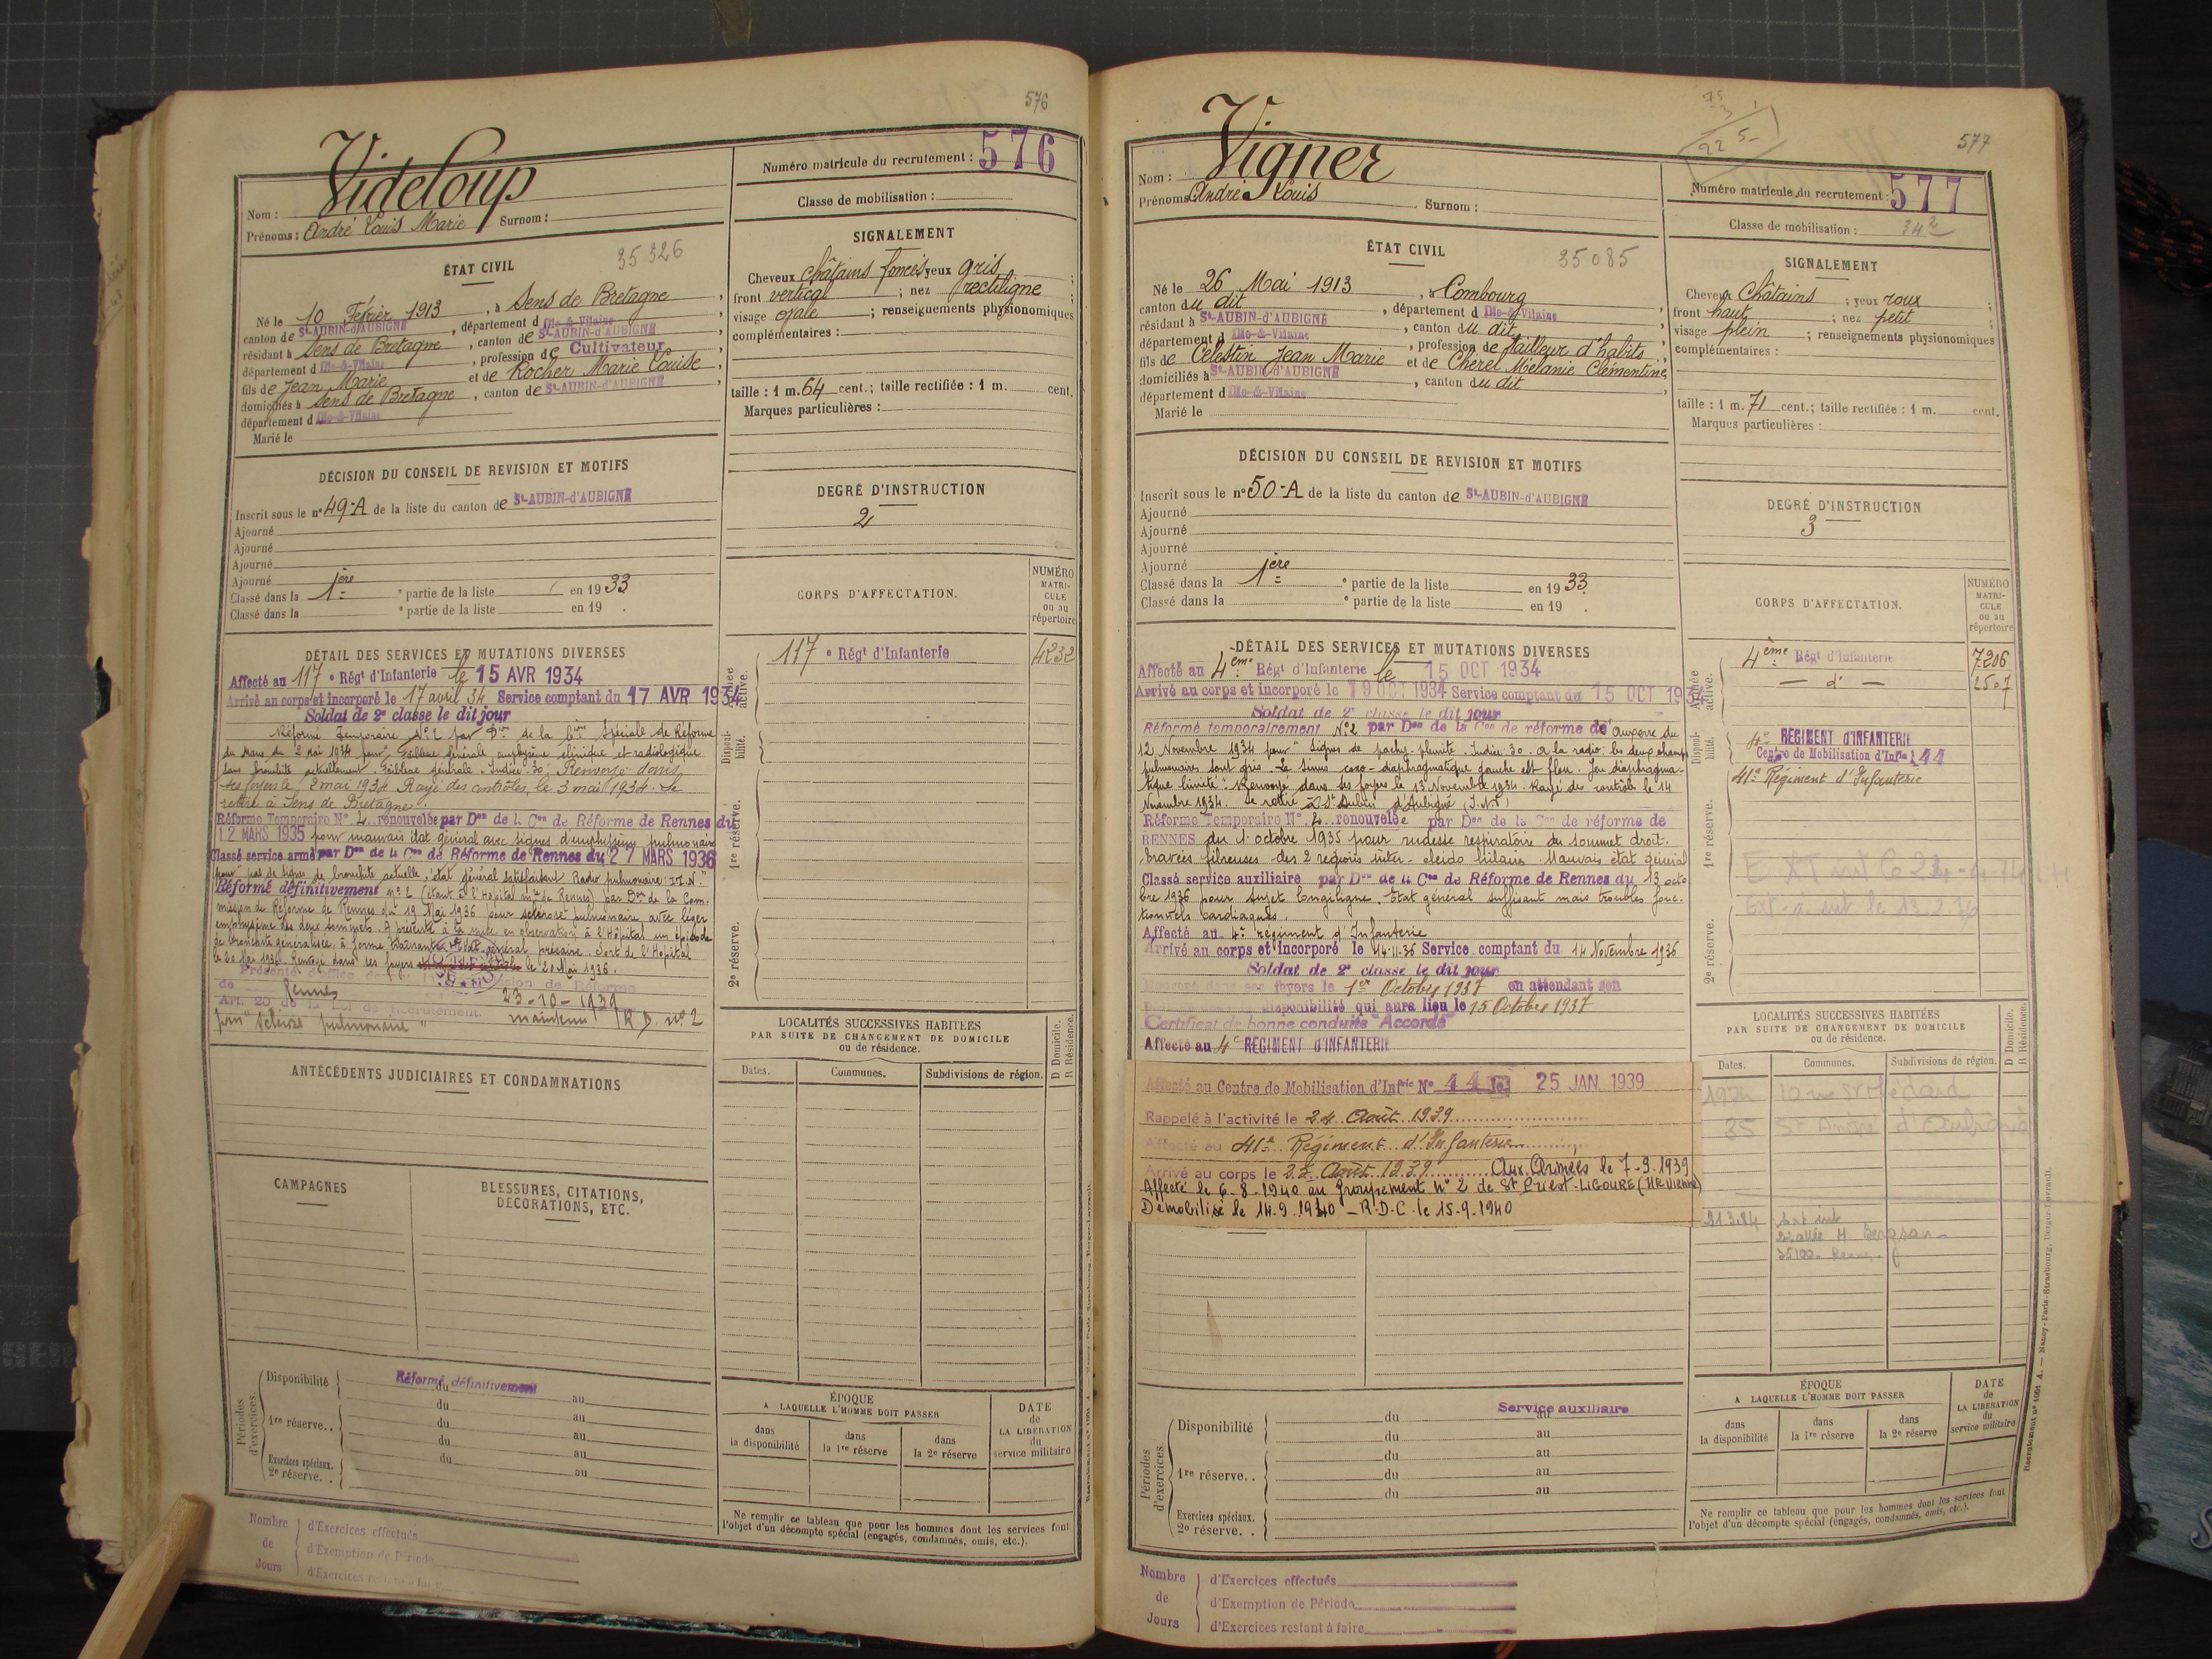 576
Videloup
Nom :
Prénoms : André Louis Marie Surnom :
Numéro matricule du recrutement : 576
Classe de mobilisation :
ÉTAT CIVIL 35 326
Né le 10 Février 1913, à Sens de Bretagne,
canton de St-AUBIN-d'AUBIGNÉ, département d Ille-&-Vilaine,
résidant à Sens de Bretagne, canton de St-AUBIN-d'AUBIGNÉ,
département d Ille-&-Vilaine, profession de Cultivateur,
fils de Jean Marie et de Rocher Marie Louise,
domiciliés à Sens de Bretagne, canton de St-AUBIN-d'AUBIGNÉ,
département d Ille-&-Vilaine
Marié le
SIGNALEMENT
Cheveux châtains foncés yeux gris ;
front vertical ; nez rectiligne ;
visage ovale ; renseignements physionomiques
complémentaires :
taille : 1 m. 64 cent.; taille rectifiée : 1 m. cent.
Marques particulières :
DÉCISION DU CONSEIL DE REVISION ET MOTIFS
Inscrit sous le n° 49-A de la liste du canton de St-AUBIN-d'AUBIGNÉ
Ajourné
Ajourné
Ajourné
Ajourné
Classé dans la 1ère e partie de la liste en 1933
Classé dans la e partie de la liste en 19 .
DEGRÉ D'INSTRUCTION
2
CORPS D'AFFECTATION.
NUMÉRO MATRI-CULE ou au répertoire
Armée active.
117 e Régt d'Infanterie 4232
Disponi-bilité.
1re réserve.
2e réserve.
DÉTAIL DES SERVICES ET MUTATIONS DIVERSES
Affecté au 117 e Régt d'Infanterie le 15 AVR 1934
Arrivé au corps et incorporé le 17 avril 34 Service comptant du 17 AVR 1934
Soldat de 2e classe le dit jour
Réformé temporaire N° 2 par Don de la Con Spéciale de Réforme
du Mans du 2 mai 1934 pour "Faiblesse générale emphysème clinique et radiologique
sans bronchite actuellement. Faiblesse générale. Indice 30. Renvoyé dans
ses foyers le 2 mai 1934 Rayé des contrôles le 3 mai 1934. Se
retire à Sens de Bretagne.
Réforme Temporaire N° 2 renouvelée par Don de la Con de Réforme de Rennes du
12 MARS 1935 pour mauvais état général avec signes d'emphysème pulmonaire
Classé service armé par Don de la Con de Réforme de Rennes du 27 MARS 1936
pour "pas de signes de bronchite actuelle, état général satisfaisant Radio pulmonaire : I.N."
Réformé définitivement n° 2 (étant à l'Hopital mre de Rennes) par Don de la Com-
mission de Réforme de Rennes du 19 Mai 1936 pour sclérose pulmonaire avec léger
emphysème des deux sommets. A présenté à la mise en observation à l'Hôpital un épisode
de bronchite généralisée, à forme trainante. Etat général précaire. Sort de l'Hôpital
le 20 Mai 1936. Renvoyé dans ses foyers le 20 Mai 1936.
Présenté d'office devant la Commission de Réforme
de Rennes 23-10-1939
Art. 20 de la Loi de Recrutement. maintenu R D. n° 2
pour "sclérose pulmonaire"
ANTÉCÉDENTS JUDICIAIRES ET CONDAMNATIONS
CAMPAGNES
BLESSURES, CITATIONS,
DÉCORATIONS, ETC.
LOCALITÉS SUCCESSIVES HABITÉES
PAR SUITE DE CHANGEMENT DE DOMICILE
ou de résidence.
D Domicile.
R Résidence.
Dates. Communes. Subdivisions de région.
Périodes d'exercices.
Disponibilité Réformé définitivement
du au
du au
1re réserve. . du au
du au
Exercices spéciaux. du au
2e réserve. .
ÉPOQUE
A LAQUELLE L'HOMME DOIT PASSER
dans la disponibilité
dans la 1re réserve
dans la 2e réserve
DATE de LA LIBÉRATION du service militaire
Ne remplir ce tableau que pour les hommes dont les services font
l'objet d'un décompte spécial (engagés, condamnés, omis, etc.).
Nombre de Jours
d'Exercices effectués
d'Exemption de Période
d'Exercices restant à faire
577
Vigner
Nom :
Prénoms André Louis Surnom :
Numéro matricule du recrutement : 577
Classe de mobilisation : 34 2
ÉTAT CIVIL 35085
Né le 26 Mai 1913, à Combourg
canton du dit, département d Ille-&-Vilaine,
résidant à St-AUBIN-d'AUBIGNÉ, canton du dit,
département d Ille-&-Vilaine, profession de tailleur d'habits,
fils de Célestin Jean Marie et de Cherel Mélanie Clémentine,
domiciliés à St-AUBIN-d'AUBIGNÉ, canton du dit
département d Ille-&-Vilaine
Marié le
SIGNALEMENT
Cheveux châtains ; yeux roux ;
front haut ; nez petit ;
visage plein ; renseignements physionomiques
complémentaires :
taille : 1 m. 71 cent.; taille rectifiée : 1 m. cent.
Marques particulières :
DÉCISION DU CONSEIL DE REVISION ET MOTIFS
Inscrit sous le n° 50-A de la liste du canton de St-AUBIN-d'AUBIGNÉ
Ajourné
Ajourné
Ajourné
Ajourné
Classé dans la 1ère e partie de la liste en 1933.
Classé dans la e partie de la liste en 19 .
DEGRÉ D'INSTRUCTION
3
CORPS D'AFFECTATION.
NUMÉRO MATRI-CULE ou au répertoire
Armée active.
4ème Régt d'Infanterie 7206
— d° — 2507
Disponi-bilité.
4e RÉGIMENT D'INFANTERIE
Centre de Mobilisation d'Infie 44
1re réserve.
41e Régiment d'Infanterie
2e réserve.
DÉTAIL DES SERVICES ET MUTATIONS DIVERSES
Affecté au 4ème Régt d'Infanterie le 15 OCT 1934
Arrivé au corps et incorporé le 19 OCT 1934 Service comptant du 15 OCT 1934
Soldat de 2e classe le dit jour
Réformé temporairement N°2 par Don de la Con de réforme de Auxerre du
12 Novembre 1934 pour "Signes de pachy-pleurite. Indice 30. A la radio : les deux champs
pulmonaires sont gris. Le sinus costo-diaphragmatique gauche est flou. Jeu diaphragma-
tique limité". Renvoyé dans ses foyers le 13 Novembre 1934. Rayé des contrôles le 14
Novembre 1934. Se retire à St Aubin d'Aubigné (I.V.)
Réforme Temporaire N° 2 renouvelée par Don de la Con de réforme de
RENNES du 1 octobre 1935 pour rudesse respiratoire du sommet droit.
travées fibreuses des 2 régions inter-cleido hilaires. Mauvais état général
Classé service auxiliaire par Don de la Con de Réforme de Rennes du 13 octo
bre 1936 pour sujet longiligne. Etat général suffisant mais troubles fonc-
tionnels cardiaques.
Affecté au 4e régiment d'Infanterie
Arrivé au corps et incorporé le 14-11-36 Service comptant du 14 Novembre 1936
Soldat de 2e classe le dit jour
Renvoyé dans ses foyers le 1er Octobre 1937 en attendant son
disponibilité qui aura lieu le 15 Octobre 1937
Certificat de bonne conduite "Accordé"
Affecté au 4e RÉGIMENT D'INFANTERIE
Affecté au Centre de Mobilisation d'Infrie N° 44 le 25 JAN. 1939
Rappelé à l'activité le 24 Août 1939
Affecté au 41e Régiment d'Infanterie
Arrivé au corps le Août 1939 Aux Armées le 7-9-1939
Affecté le 6-8-1940 au Groupement n° 2 de St Priest-LIGOURE (Hte Vienne)
Démobilisé le 14-9-1940 — R.D.C. le 15-9-1940
LOCALITÉS SUCCESSIVES HABITÉES
PAR SUITE DE CHANGEMENT DE DOMICILE
ou de résidence.
D Domicile.
R Résidence.
Dates. Communes. Subdivisions de région.
35
35100 Rennes
Périodes d'exercices.
Disponibilité du Service auxiliaire au
du au
du au
1re réserve. . du au
du au
Exercices spéciaux.
2e réserve. .
ÉPOQUE
A LAQUELLE L'HOMME DOIT PASSER
dans la disponibilité
dans la 1re réserve
dans la 2e réserve
DATE de LA LIBÉRATION du service militaire
Ne remplir ce tableau que pour les hommes dont les services font
l'objet d'un décompte spécial (engagés, condamnés, omis, etc.).
Nombre de Jours
d'Exercices effectués
d'Exemption de Période
d'Exercices restant à faire